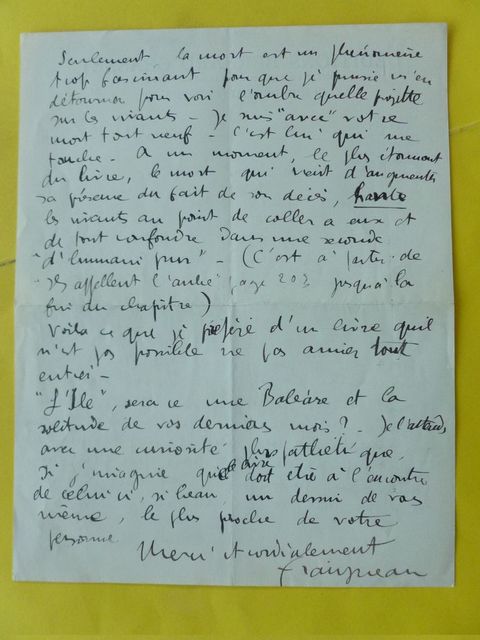 Seulement la mort est un phénomène
trop fascinant pour que je puisse m'en
détourner pour voir l'ombre qu'elle projette
sur les vivants - Je suis "avec" votre
mort tout neuf - C'est lui qui me
touche - A un moment, le plus étonnant
du livre, le mort qui vient d'augmenter
sa présence du fait de son décès, hante
les vivants au point de coller à eux et
de tout confondre dans une seconde
"d'humain pur" - (C'est à partir de
"Ils appellent l'autre" page 203 jusqu'à la
fin du chapitre)
Voilà ce que je préfère d'un livre qu'il
n'est pas possible ne pas aimer tout
entier -
"L'Ile", sera ce une Baléare et la
solitude de vos derniers mois ? - Je l'attends
avec une curiosité plus pathétique,
si j'imagine que ce livre doit être à l'encontre
de celui ci, si beau, un dessin de vous
même, le plus proche de votre
personne
Merci et cordialement